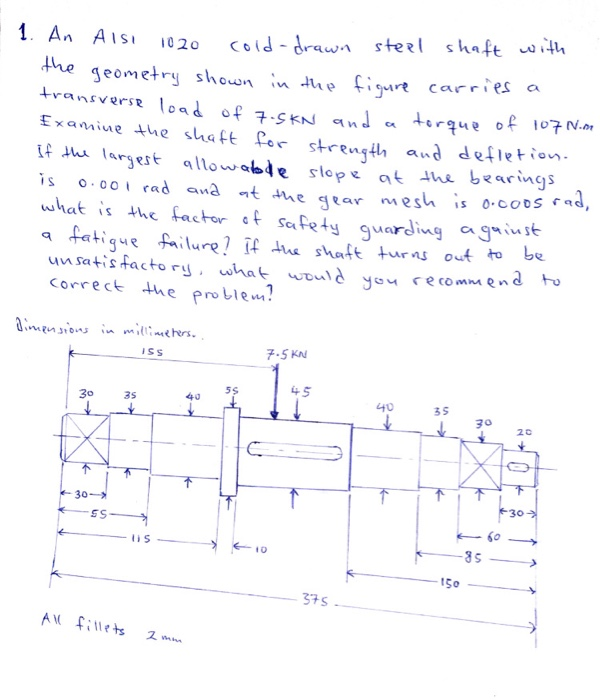 1. An AISI 1020 cold-drawn steel shaft with
the geometry shown in the figure carries a
transverse load of 7.5KN and a torque of 107 N.m
Examine the shaft for strength and defletion.
If the largest allowable slope at the bearings
is 0.001 rad and at the gear mesh is 0.0005 rad,
what is the factor of safety guarding against
a fatigue failure? If the shaft turns out to be
unsatisfactory, what would you recommend to
correct the problem?
Dimensions in millimeters.
155
7.5 KN
30 35 40 55 45 40 35 30 20
30
30
55
60
115
10
85
150
375
All fillets 2mm